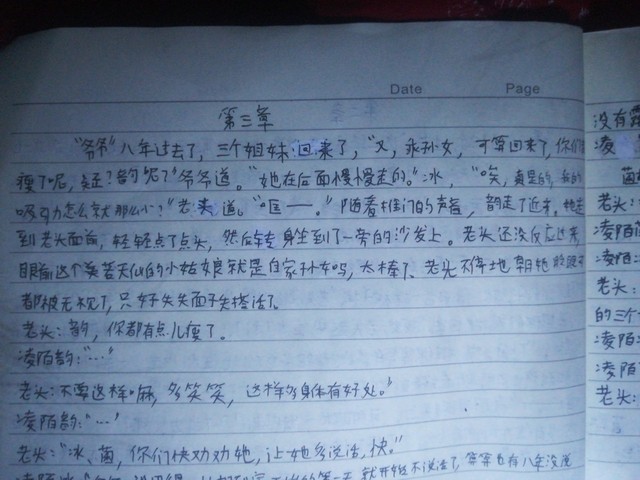 Date Page
第三章
"爷爷"八年过去了，三个姐妹回来了，"又，乖孙女，可等回来了，你们
瘦了呢，韵呢？"爷爷道。"她在后面慢慢走的。"冰，"唉，真是的，我的
吸引力怎么就那么小？"老头道。"哐——。"随着推门的声音，韵走了近来，她走
到老头面前，轻轻点了点头，然后转身坐到了一旁的沙发上。老头还没反应过来，
眼前这个美若天仙的小姑娘就是自家孙女吗，太棒了、老头不停地朝她
都被无视了，只好失失面子失搭话了
老头：韵，你都有点儿瘦了。
凌陌韵："…"
老头：不要这样嘛，多笑笑，这样多身体有好处。"
凌陌韵："…"
老头："冰、茵，你们快劝劝她，让她多说话，快。"
凌陌冰 就开始不说话了，等等也有八年没说
没有
凌
茵
老头：
凌陌
凌陌：
老头：
的三个
凌陌
凌陌
老头：